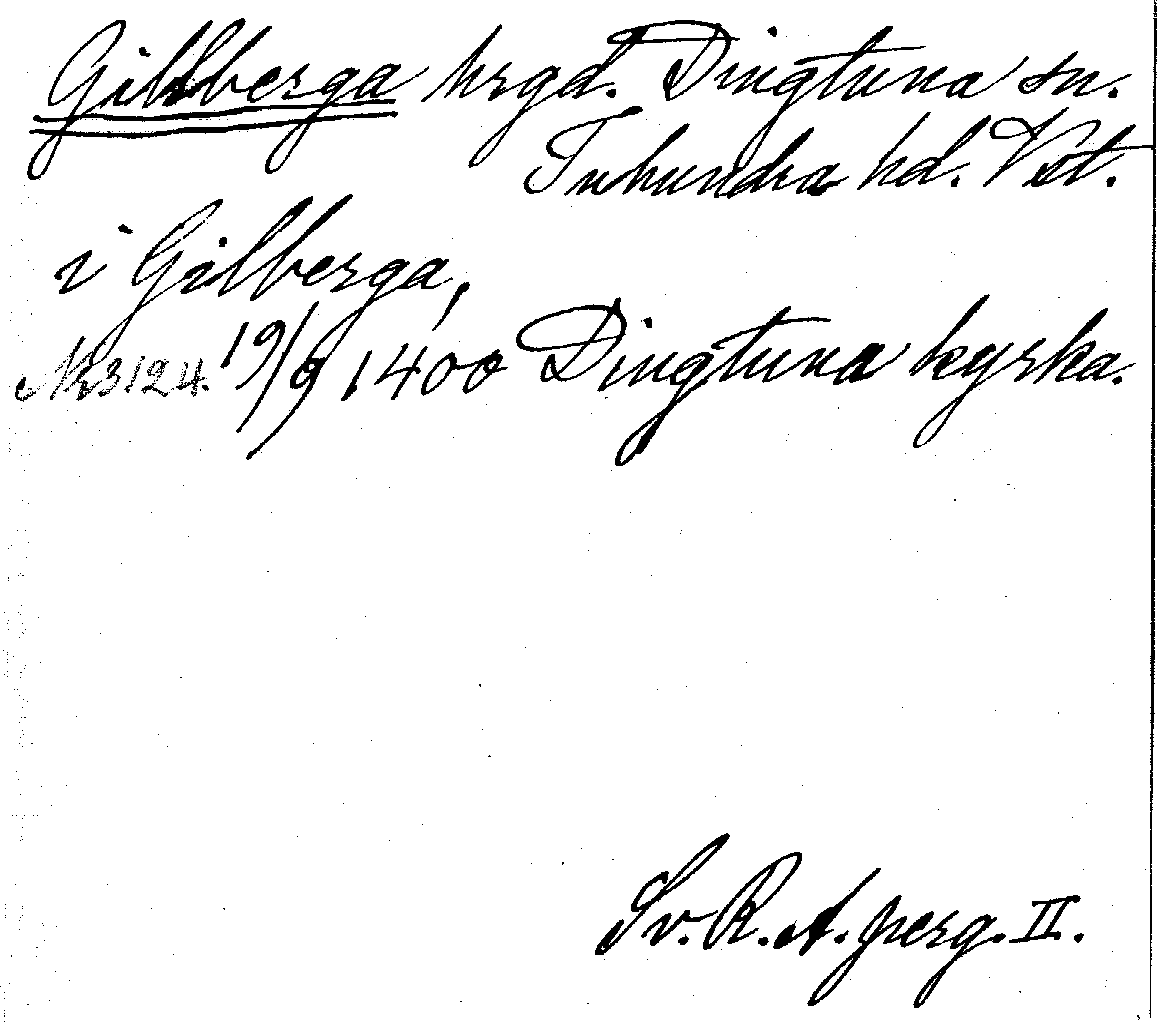 Gillberga hrgd. Dingtuna sn.
Tuhundra hd. Vst.
i Gilberga,
Nr 3124. 19/9 1400 Dingtuna kyrka.
Sv. R. A. perg. II.